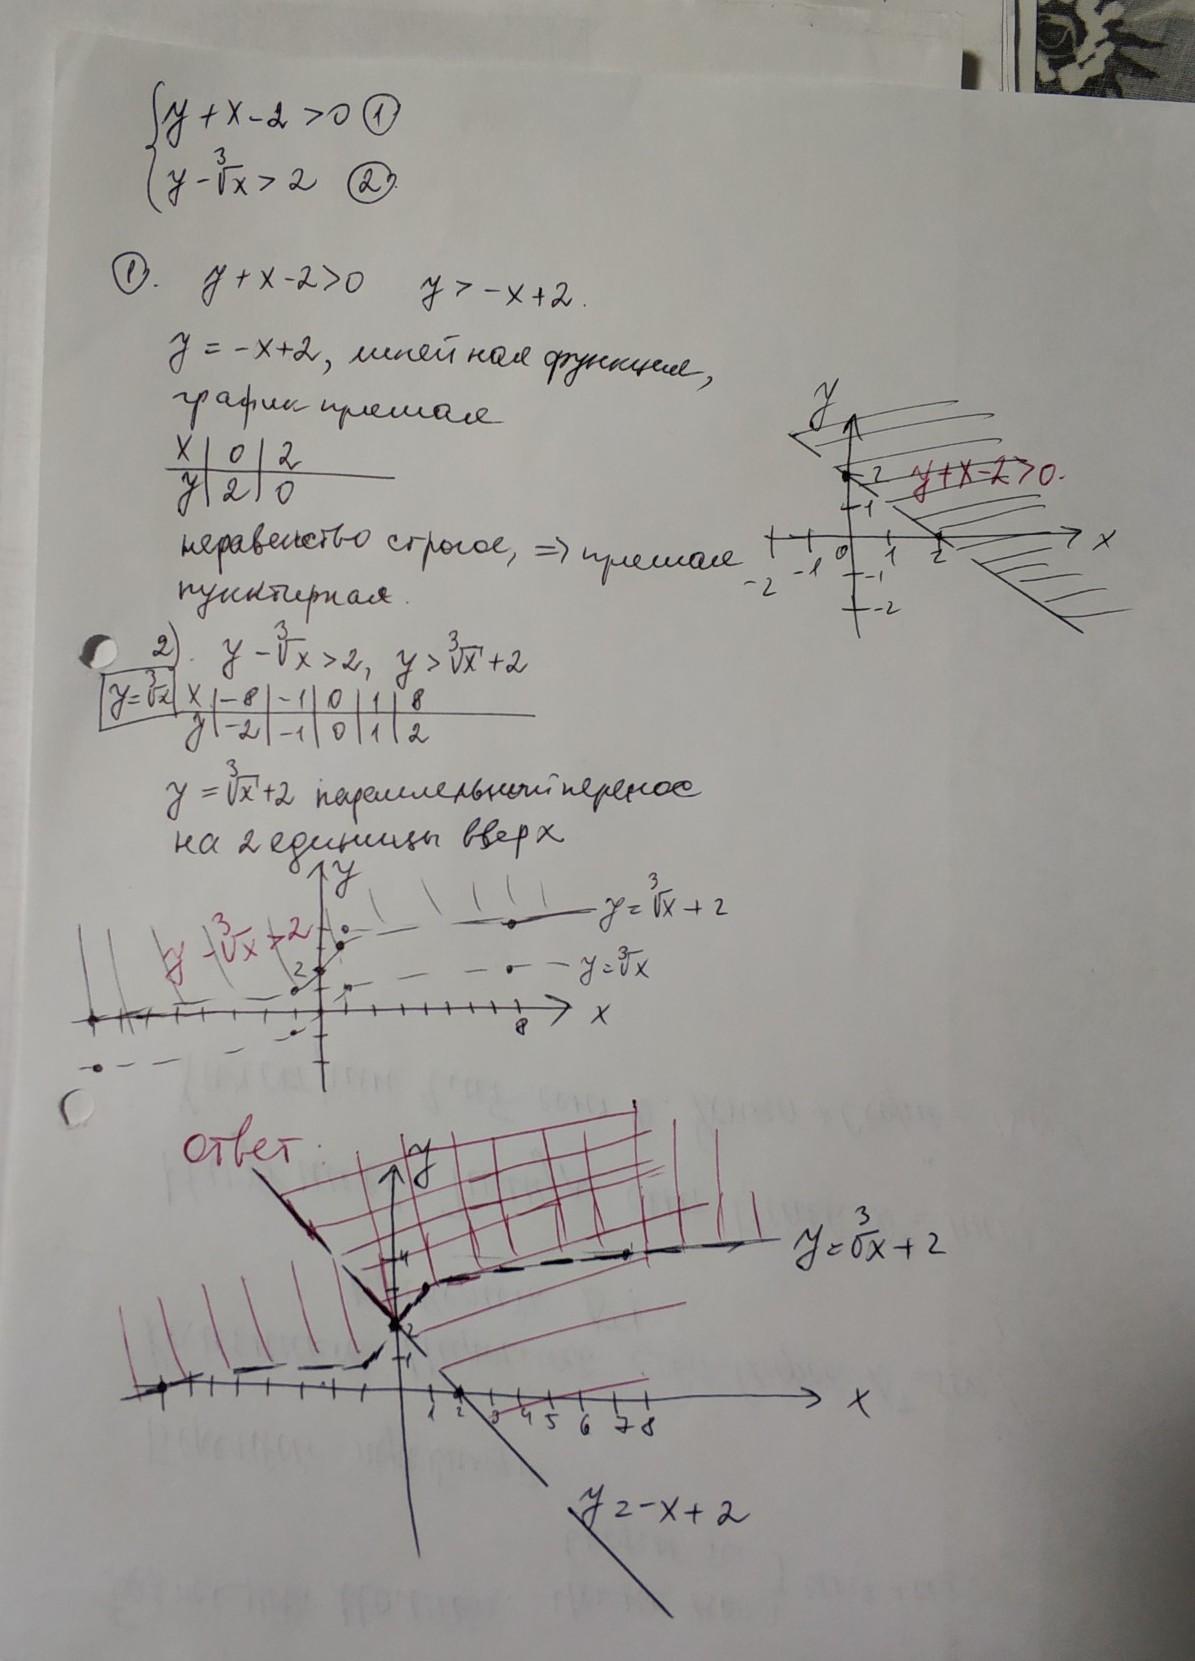 y + x - 2 > 0 ①
y - ∛x > 2 ②
①. y + x - 2 > 0 y > -x + 2.
y = -x+2, линейная функция,
график прямая
x | 0 | 2
y | 2 | 0
неравенство строгое, => прямая
пунктирная.
y
2
y+x-2>0.
1
-2 -1 0 1 2 x
-1
-2
2). y - ∛x > 2, y > ∛x + 2
y = ∛x x | -8 | -1 | 0 | 1 | 8
y | -2 | -1 | 0 | 1 | 2
y = ∛x + 2 параллельный перенос
на 2 единицы вверх
y
y = ∛x + 2
y - ∛x > 2
2
y = ∛x
8 x
ответ:
y
4
y = ∛x + 2
2
1
1 2 3 4 5 6 7 8 x
y = -x + 2